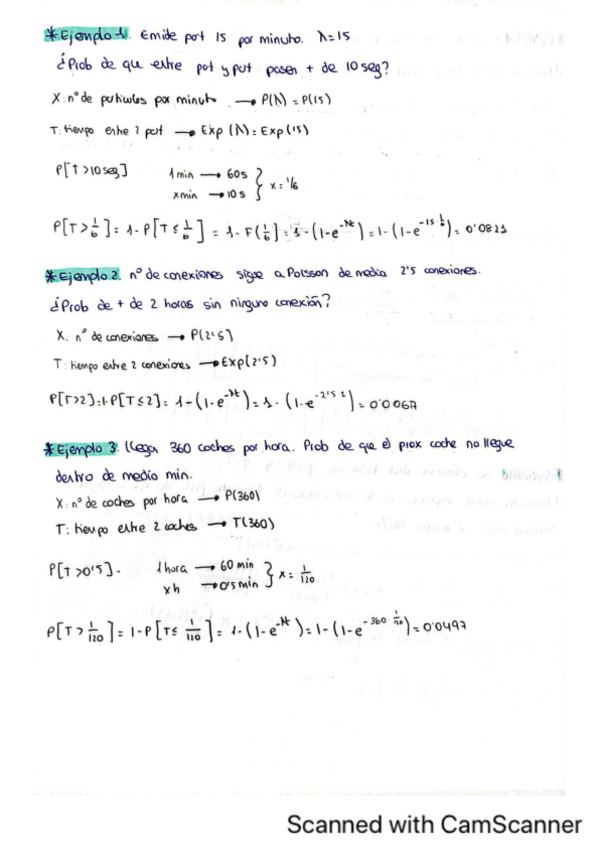 *Ejemplo 1. Emide part 15 por minuto. λ=15
¿Prob de que entre part y part pasen + de 10 seg?
X: nº de particulas por minuto → P(λ) = P(15)
T: tiempo entre 2 part → Exp (λ) = Exp (15)
P[T>10seg] 1 min → 60s
x min → 10 s } x = 1/6
P[T > 1/6] = 1 - P[T ≤ 1/6] = 1 - F(1/6) = 1 - (1-e^-λt) = 1 - (1-e^-15 1/6) = 0'0821
*Ejemplo 2. nº de conexiones sigue a Poisson de media 2'5 conexiones.
¿Prob de + de 2 horas sin ninguna conexión?
X: nº de conexiones → P(2'5)
T: tiempo entre 2 conexiones → Exp(2'5)
P[T>2]=1-P[T≤2] = 1-(1-e^-λt) = 1 - (1-e^-2'5 2) = 0'0067
*Ejemplo 3. llega 360 coches por hora. Prob de que el prox coche no llegue
dentro de medio min.
X: nº de coches por hora → P(360)
T: tiempo entre 2 coches → T(360)
P[T>0'5]. 1 hora → 60 min
x h → 0'5 min } x = 1/120
P[T > 1/120] = 1-P[T≤ 1/120] = 1-(1-e^-λt) = 1-(1-e^-360 1/120) = 0'0497
Scanned with CamScanner